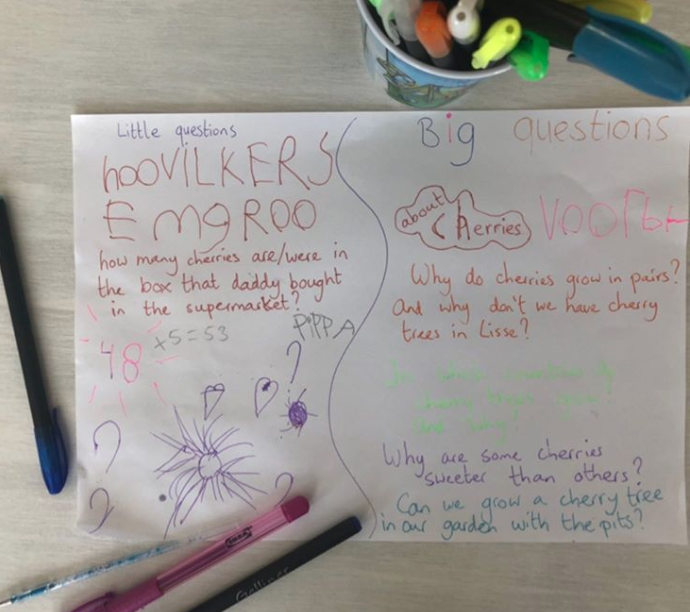 Little questions
hooVILKERS
EmgROO
how many cherries are/were in
the box that daddy bought
in the supermarket?
48 +5=53
PIPPA
Big questions
about
Cherries
Why do cherries grow in pairs?
And why don't we have cherry
trees in Lisse?
In which countries do
cherry trees grow?
And why?
Why are some cherries
sweeter than others?
Can we grow a cherry tree
in our garden with the pits?